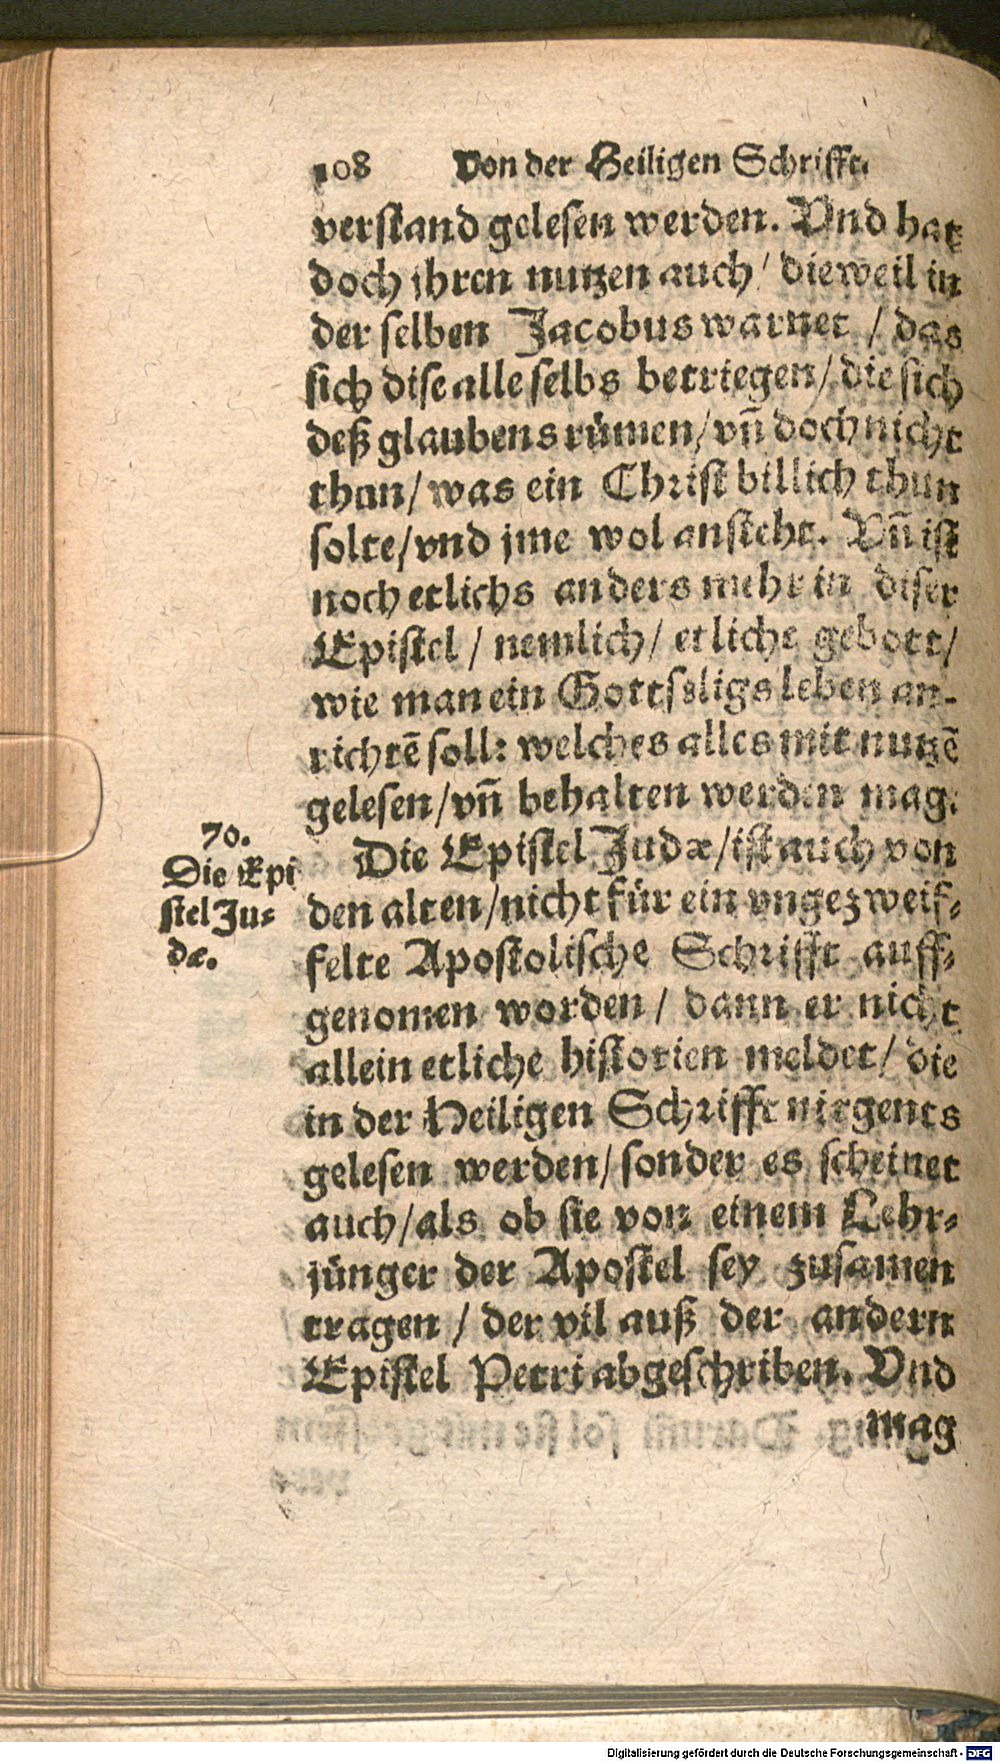 108 Von der Heiligen Schrifft.
verstand gelesen werden. Vnd hat
doch jhren nutzen auch / dieweil in
der selben Jacobus warnet / das
sich dise alle selbs betriegen / die sich
deß glaubens rümen / vñ doch nicht
thun / was ein Christ billich thun
solte / vnd jme wol ansteht. Vñ ist
noch etlichs anders mehr in diser
Epistel / nemlich / etliche gebott /
wie man ein Gottseligs leben an-
richtē soll: welches alles mit nutzē
gelesen / vñ behalten werden mag.
70.
Die Epi
stel Ju-
dæ.
Die Epistel Judæ / ist auch von
den alten / nicht für ein vngezweif-
felte Apostolische Schrifft auff-
genomen worden / dann er nicht
allein etliche historien meldet / die
in der Heiligen Schrifft nirgents
gelesen werden / sonder es scheinet
auch / als ob sie von einem Lehr-
jünger der Apostel sey zusamen
tragen / der vil auß der andern
Epistel Petri abgeschriben. Vnd
mag
Digitalisierung gefördert durch die Deutsche Forschungsgemeinschaft - DFG